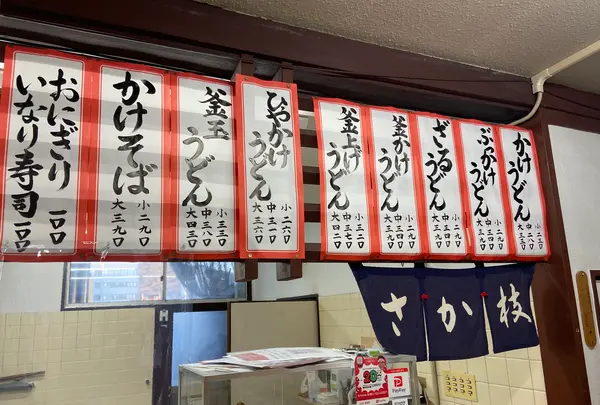 かけうどん
小 二三〇
中 二八〇
ぶっかけうどん
小 二九〇
中 三四〇
大 三九〇
ざるうどん
小 二九〇
中 三四〇
釜かけうどん
小 二九〇
中 三四〇
大 三九〇
釜上げうどん
小 三二〇
中 三七〇
大 四二〇
ひやかけうどん
小 二六〇
中 三一〇
大 三六〇
釜玉うどん
小 三三〇
中 三八〇
大 四三〇
かけそば
小 二九〇
大 三九〇
おにぎり
いなり寿司
さか枝
PayPay